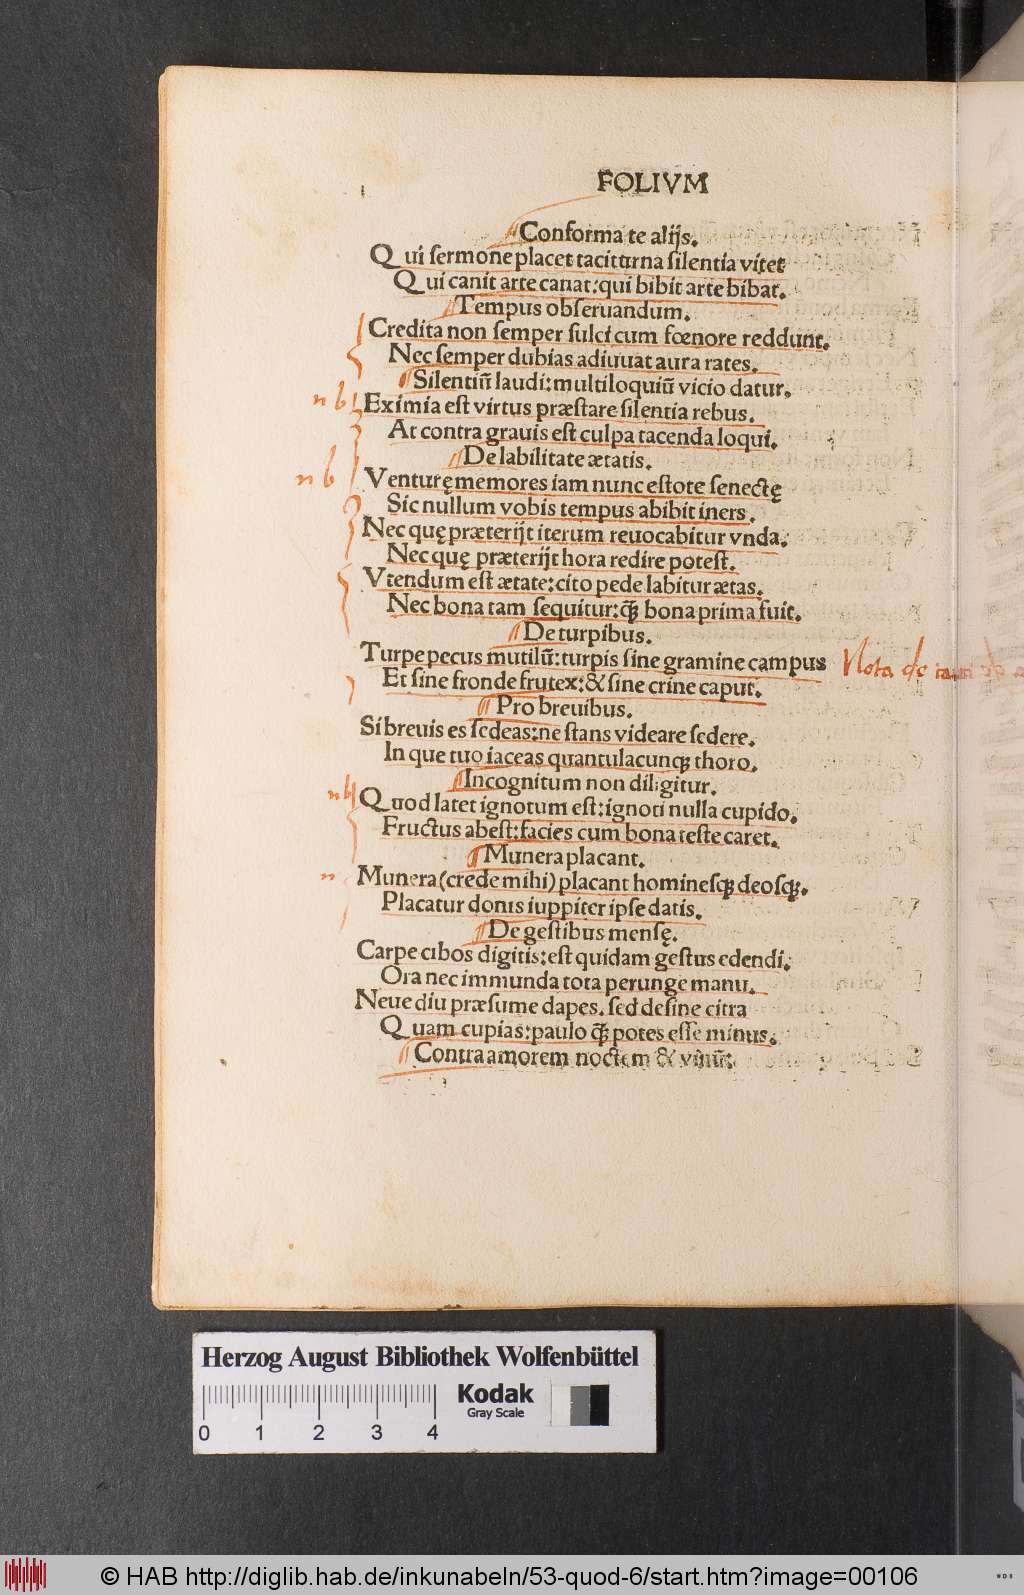 FOLIVM
Conforma te alijs.
Qui sermone placet taciturna silentia vitet
Qui canit arte canat: qui bibit arte bibat.
Tempus obseruandum.
Credita non semper sulci cum fœnore reddunt.
Nec semper dubias adiuuat aura rates.
Silentiū laudi: multiloquiū vicio datur.
nb
Eximia est virtus præstare silentia rebus.
At contra grauis est culpa tacenda loqui.
De labilitate ætatis.
nb
Venturę memores iam nunc estote senectę
Sic nullum vobis tempus abibit iners.
Nec quę præterijt iterum reuocabitur vnda.
Nec quę præterijt hora redire potest.
Vtendum est ætate: cito pede labitur ætas.
Nec bona tam sequitur: q̃ bona prima fuit.
De turpibus.
Turpe pecus mutilū: turpis sine gramine campus
Nota de
Et sine fronde frutex: & sine crine caput.
Pro breuibus.
Si breuis es sedeas: ne stans videare sedere.
In que tuo iaceas quantulacunqꝫ thoro.
Incognitum non diligitur.
nb
Quod latet ignotum est: ignoti nulla cupido.
Fructus abest: facies cum bona teste caret.
Munera placant.
n
Munera (crede mihi) placant hominesqꝫ deosqꝫ.
Placatur donis iuppiter ipse datis.
De gestibus mensę.
Carpe cibos digitis: est quidam gestus edendi.
Ora nec immunda tota perunge manu.
Neue diu præsume dapes. sed desine citra
Quam cupias: paulo q̃ potes esse minus.
Contra amorem noctem & vinū:
Herzog August Bibliothek Wolfenbüttel
Kodak
Gray Scale
0 1 2 3 4
© HAB http://diglib.hab.de/inkunabeln/53-quod-6/start.htm?image=00106